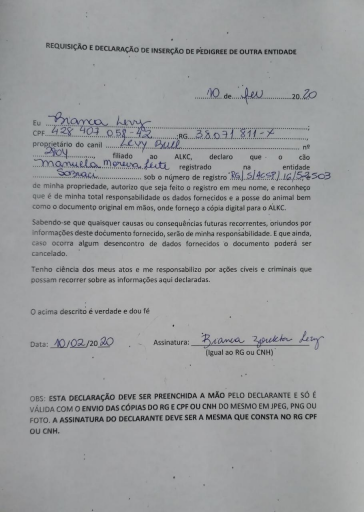 REQUISIÇÃO E DECLARAÇÃO DE INSERÇÃO DE PEDIGREE DE OUTRA ENTIDADE
10 de fev 2020
Eu Branca Levy
CPF 428 407 058-42 RG 38071811-X
proprietário do canil Levy Bull nº
2804, filiado ao ALKC, declaro que o cão
Manuela Moreira Leite registrado na entidade
Sobraci sob o número de registro RG/
de minha propriedade, autorizo que seja feito o registro em meu nome, e reconheço
que é de minha total responsabilidade os dados fornecidos e a posse do animal bem
como o documento original em mãos, onde forneço a cópia digital para o ALKC.
Sabendo-se que quaisquer causas ou consequências futuras recorrentes, oriundos por
informações deste documento fornecido, serão de minha responsabilidade. E que ainda,
caso ocorra algum desencontro de dados fornecidos o documento poderá ser
cancelado.
Tenho ciência dos meus atos e me responsabilizo por ações cíveis e criminais que
possam recorrer sobre as informações aqui declaradas.
O acima descrito é verdade e dou fé
Data: 10/02/2020 Assinatura: Branca Levy
(Igual ao RG ou CNH)
OBS: ESTA DECLARAÇÃO DEVE SER PREENCHIDA A MÃO PELO DECLARANTE E SÓ É
VÁLIDA COM O ENVIO DAS CÓPIAS DO RG E CPF OU CNH DO MESMO EM JPEG, PNG OU
FOTO. A ASSINATURA DO DECLARANTE DEVE SER A MESMA QUE CONSTA NO RG CPF
OU CNH.